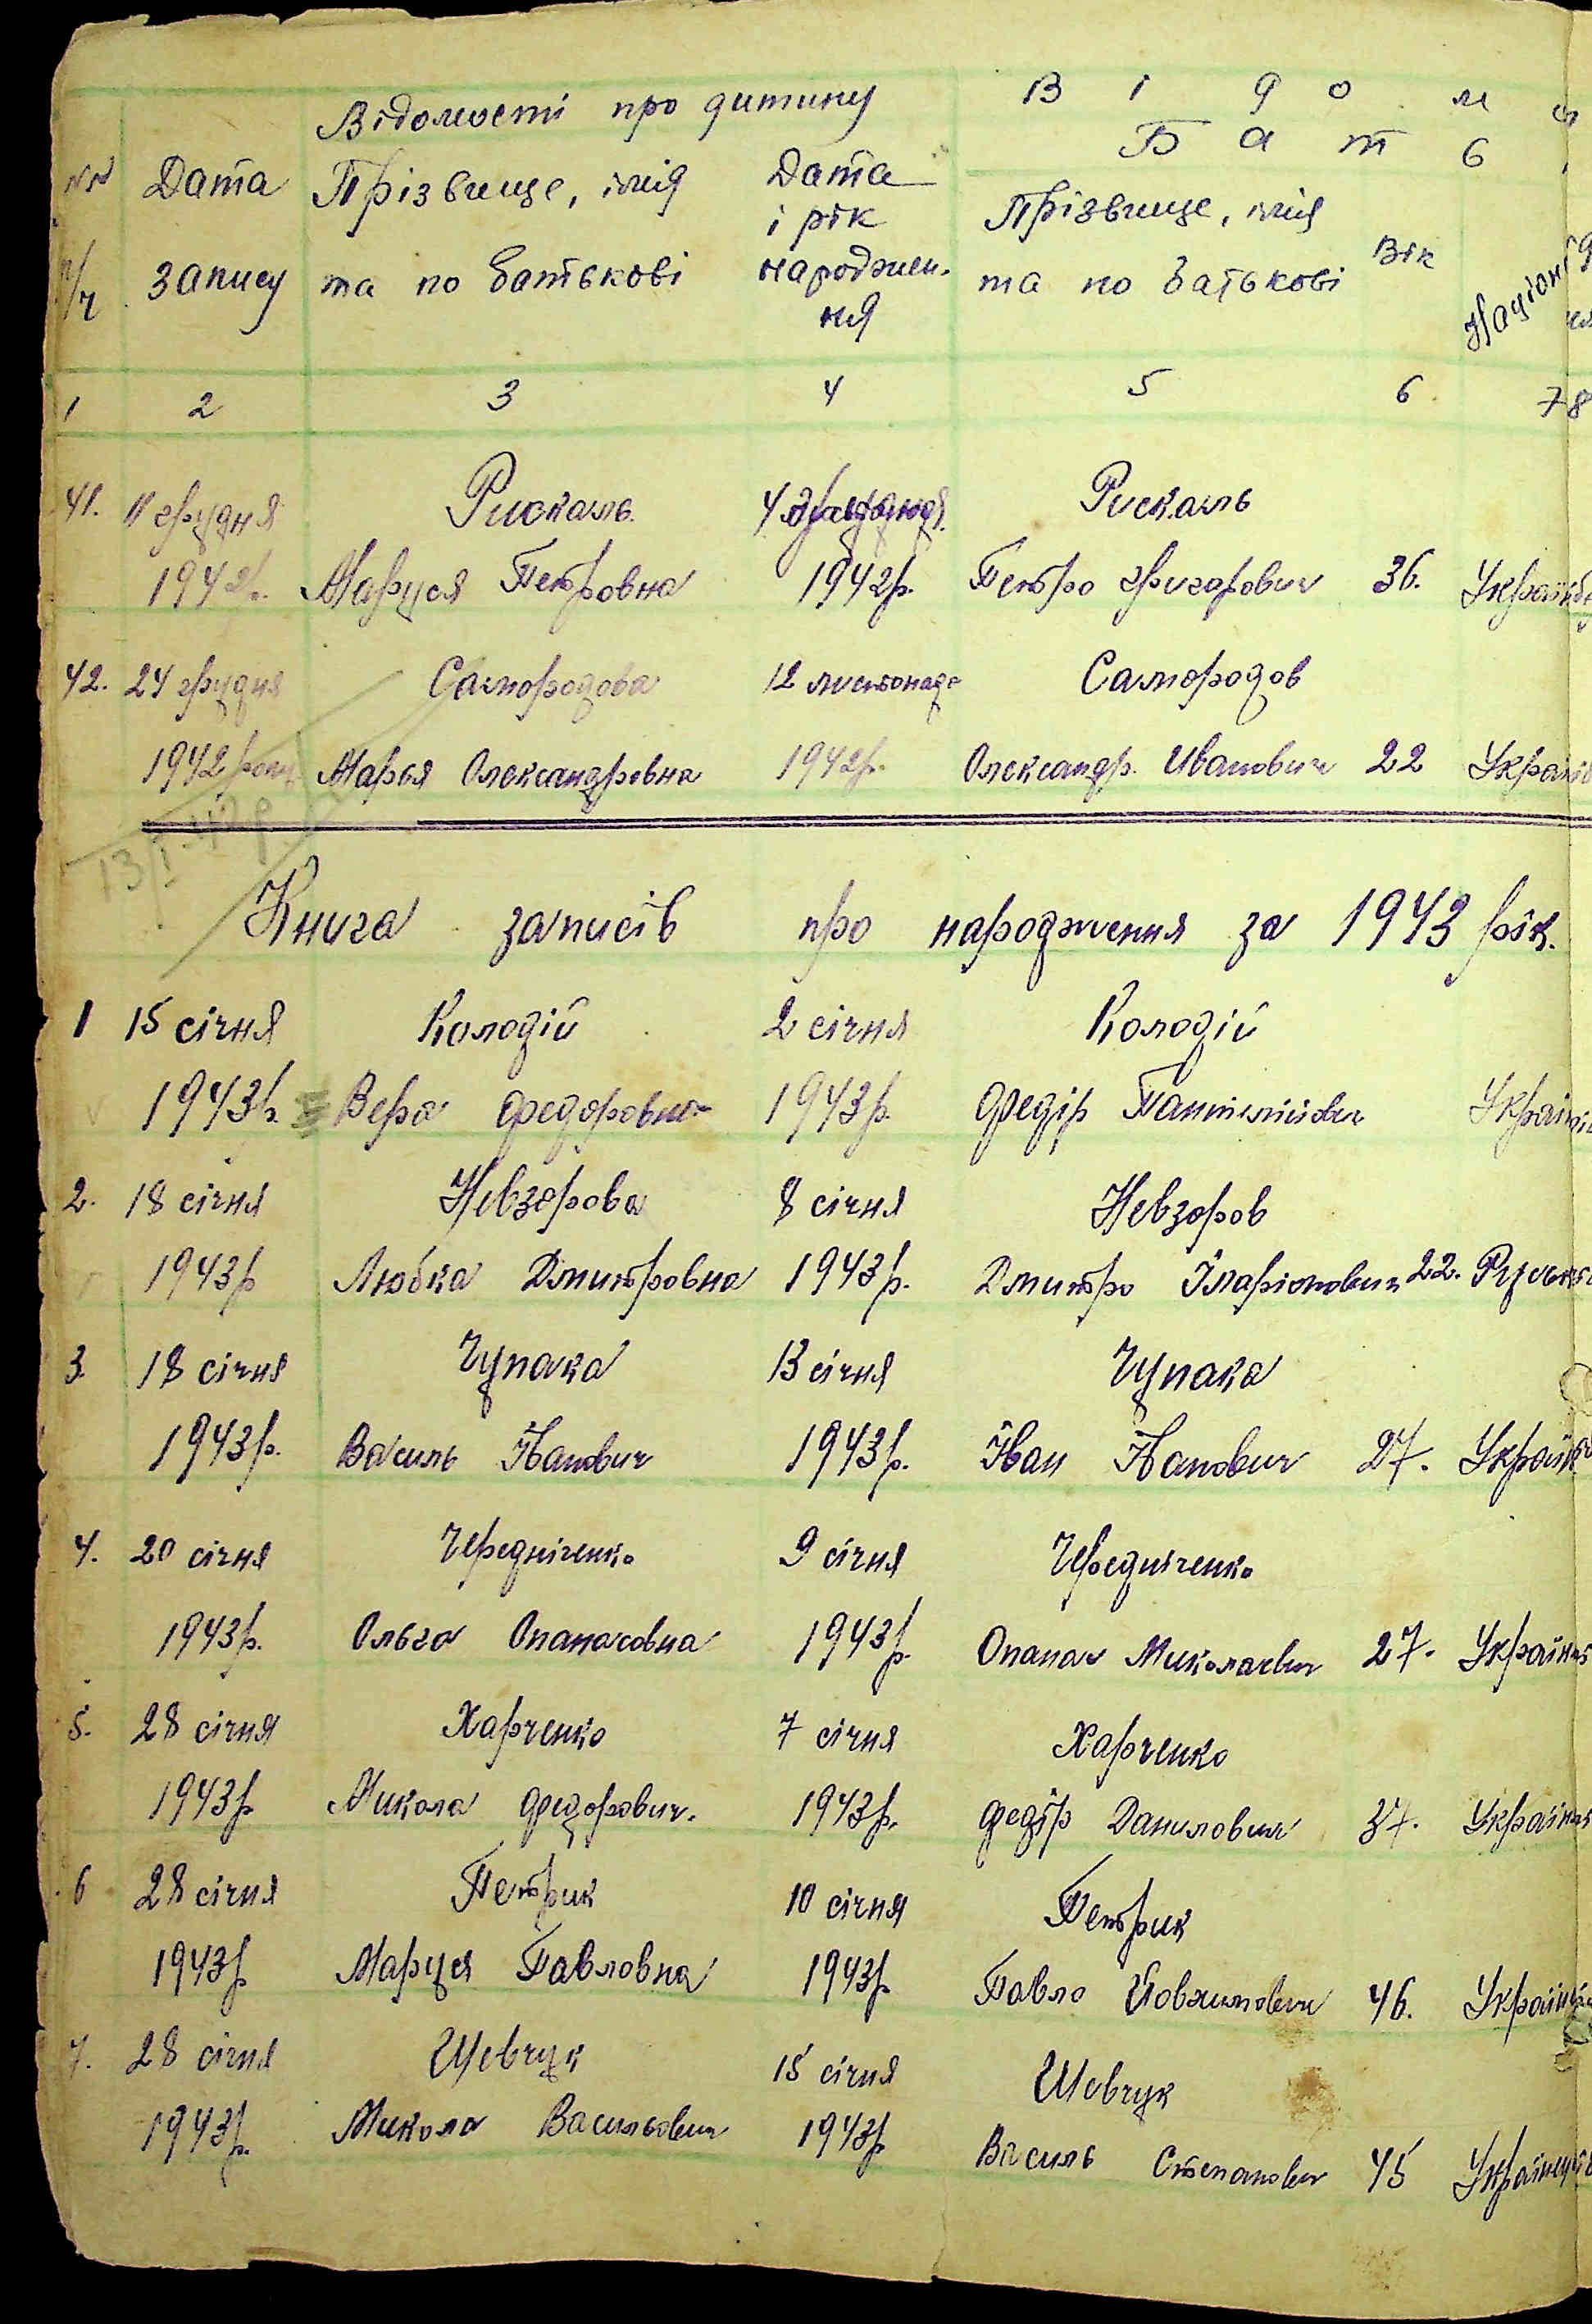 Відомості про дитину
В і д о м
Б а т ь
№№ Дата Прізвище, імя Дата
і рік Прізвище, імя
п/ч запису та по батькові народжен- та по батькові Вік Націон
ня
1 2 3 4 5 6 7 8
41. 11 грудня Рискаль 4 Рискаль
1942р. Маруся Петровна 1942р. Петро Григорович 36. Україн
42. 24 грудня Самородова 12 листопада Самородов
1942 року Марья Олександровна 1942р. Олександр Иванович 22 Украї
13/I-42р
Книга записів про народження за 1943 рік.
1 15 січня Колодій 2 січня Колодій
1943р. Вера Федоровна 1943р. Федір Пантелійович Україн
2. 18 січня Невзорова 8 січня Невзоров
1943р Любка Дмитровна 1943р. Дмитро Іларіонович 22. Руськ
3. 18 січня Чупака 13 січня Чупака
1943р. Василь Іванович 1943р. Іван Іванович 27. Україн
4. 20 січня Чередніченко 9 січня Чередніченко
1943р. Ольга Опанасовна 1943р. Опанас Миколаевич 27. Україн
5. 28 січня Харченко 7 січня Харченко
1943р Микола Федорович. 1943р. Федір Данилович 37. Україн
6 28 січня Петрик 10 січня Петрик
1943р Маруся Павловна 1943р. Павло 46. Україн
7. 28 січня Шевчук 15 січня Шевчук
1943р. Микола Васильович 1943р Василь Степанович 45 Українец